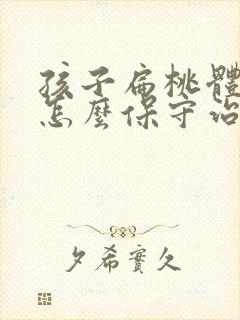 孩子扁桃體
怎麼保守治
夕希實久